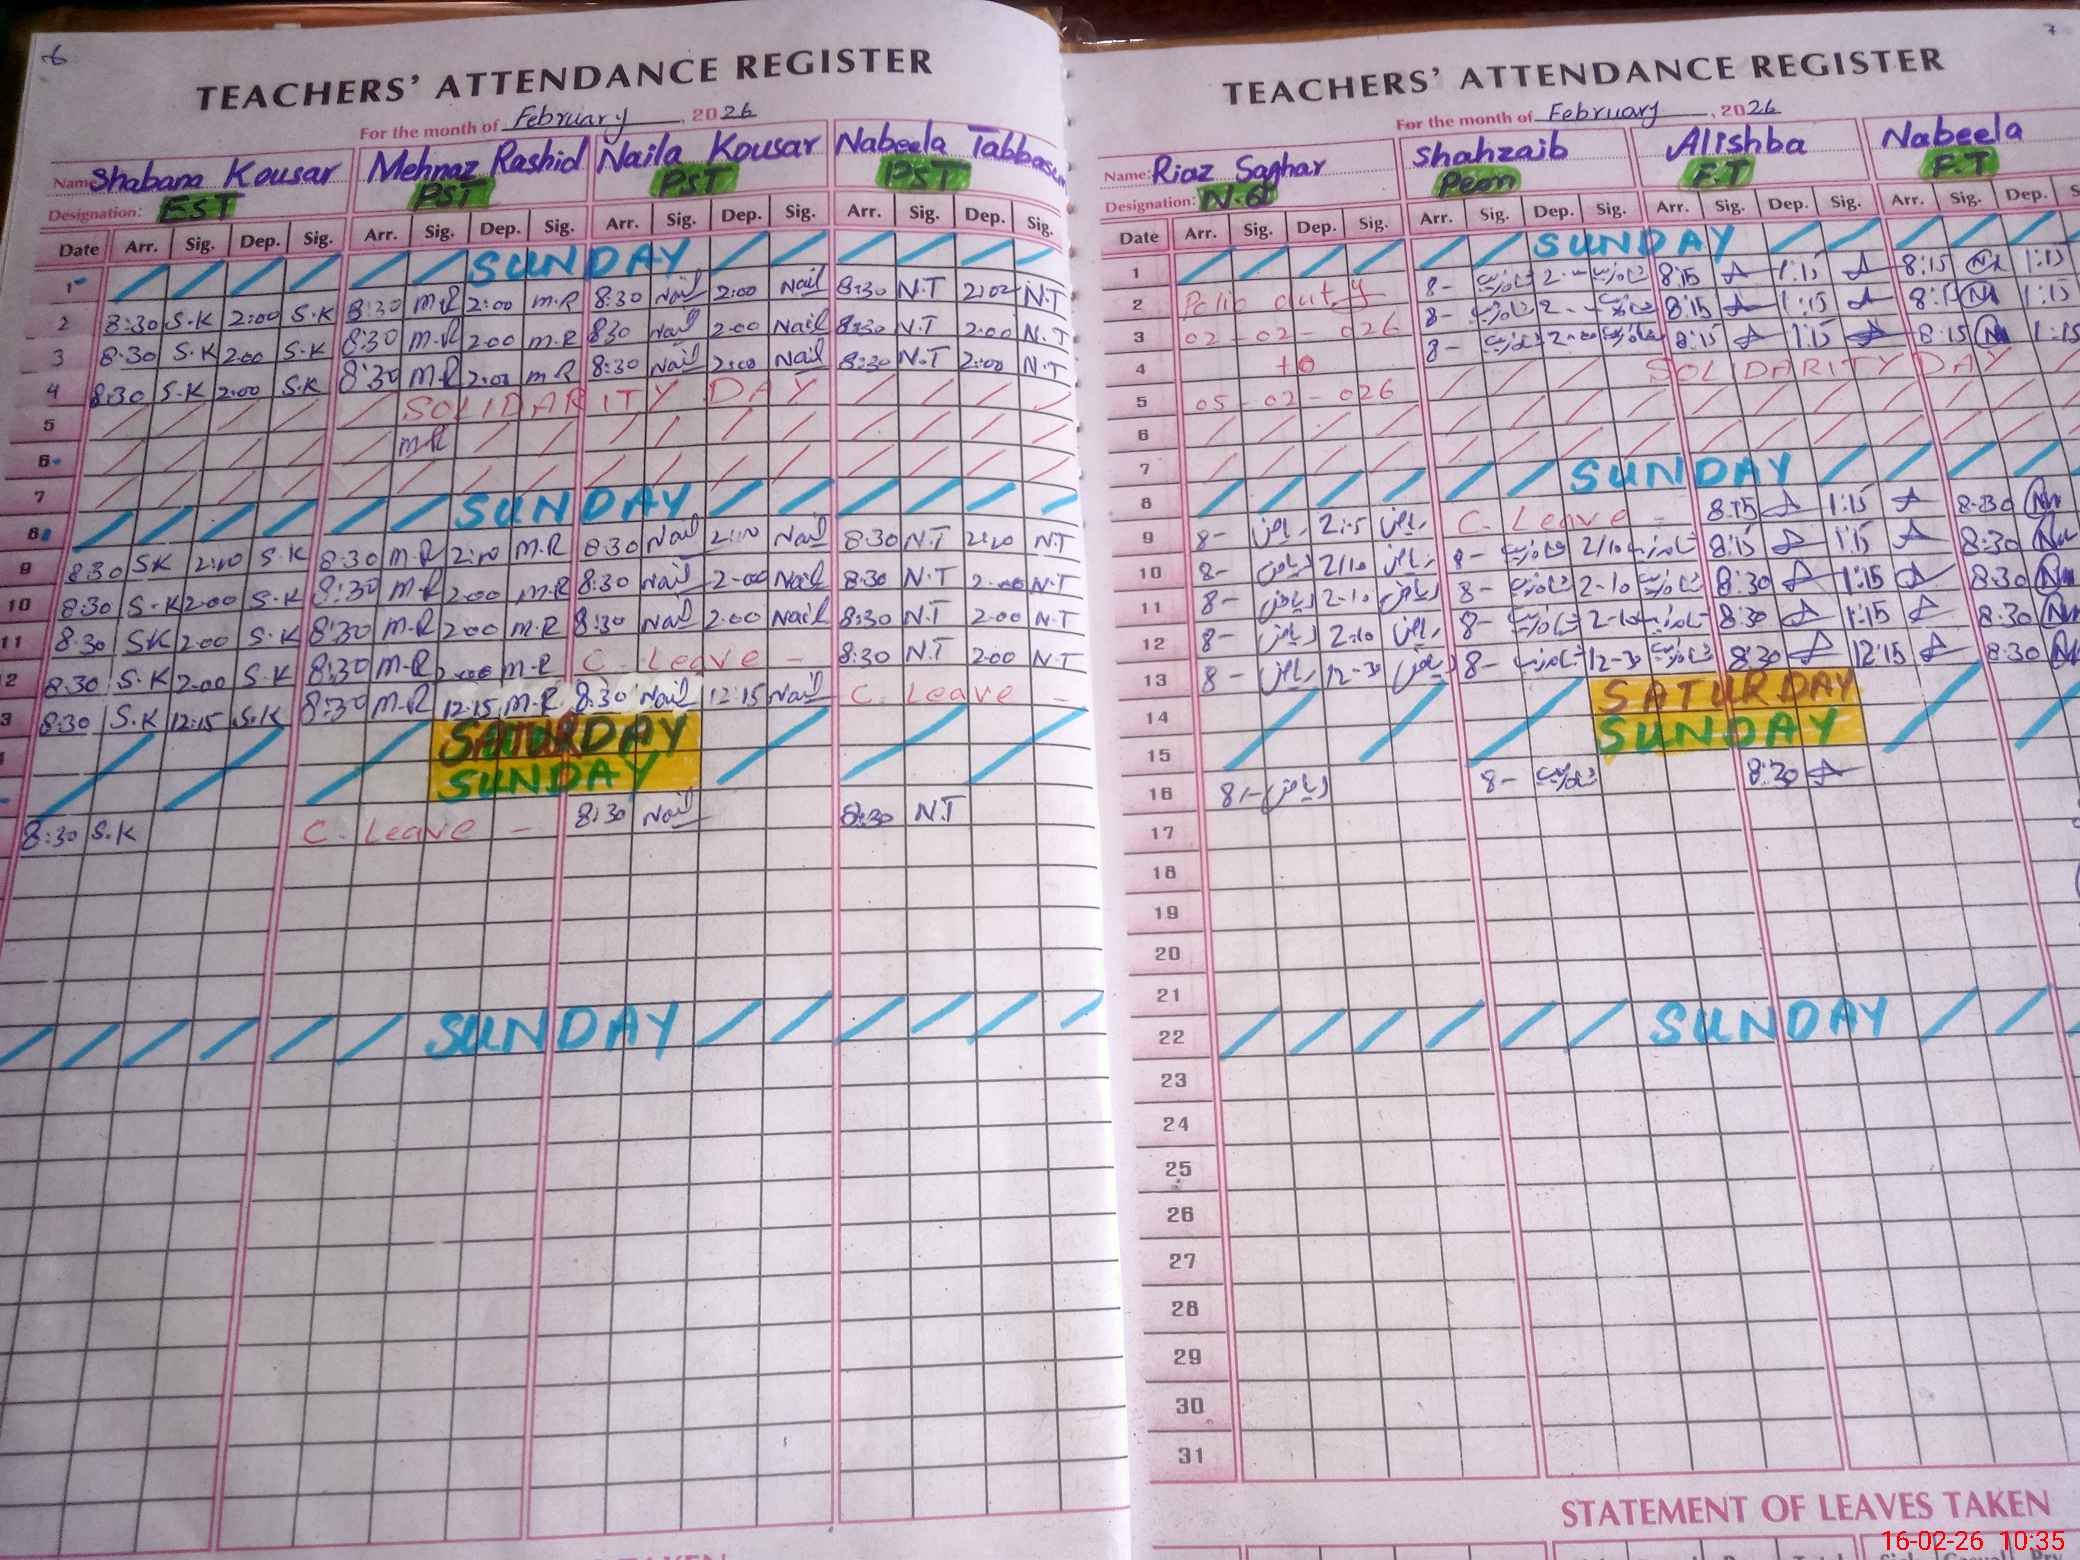 6
TEACHERS' ATTENDANCE REGISTER
For the month of February, 2026
Name: Shabana Kousar Mehnaz Rashid Naila Kousar Nabeela Tabbasum
Designation: EST PST PST PST
Date Arr. Sig. Dep. Sig. Arr. Sig. Dep. Sig. Arr. Sig. Dep. Sig. Arr. Sig. Dep. Sig.
1 SUNDAY
2 8:30 S.K 2:00 S.K 8:30 M.R 2:00 M.R 8:30 Nail 2:00 Nail 8:30 N.T N.T
3 8:30 S.K 2:00 S.K 8:30 M.R 2:00 M.R 8:30 Nail 2:00 Nail 8:30 N.T 2:00 N.T
4 8:30 S.K 2:00 S.K 8:30 M.R 2:00 M.R 8:30 Nail 2:00 Nail 8:30 N.T 2:00 N.T
5 SOLIDARITY DAY
6 M.R
7
8 SUNDAY
9 8:30 S.K 2:10 S.K 8:30 M.R 2:10 M.R 8:30 Nail 2:10 Nail 8:30 N.T N.T
10 8:30 S.K 2:00 S.K 8:30 M.R 2:00 M.R 8:30 Nail 2:00 Nail 8:30 N.T 2:00 N.T
11 8:30 S.K 2:00 S.K 8:30 M.R 2:00 M.R 8:30 Nail 2:00 Nail 8:30 N.T 2:00 N.T
2 8:30 S.K 2:00 S.K 8:30 M.R 2:00 M.R C. Leave - 8:30 N.T 2:00 N.T
3 8:30 S.K 12:15 S.K 8:30 M.R 12:15 M.R 8:30 Nail 12:15 Nail C. Leave -
SATURDAY
SUNDAY
8:30 S.K C. Leave - 8:30 Nail 8:30 N.T
SUNDAY
7
TEACHERS' ATTENDANCE REGISTER
For the month of February, 2026
Name: Riaz Saghar Shahzaib Alishba Nabeela
Designation: Peon F.T F.T
Date Arr. Sig. Dep. Sig. Arr. Sig. Dep. Sig. Arr. Sig. Dep. Sig. Arr. Sig. Dep.
1 SUNDAY
2 Polio duty 8- 8:15 1:15 8:15 1:15
3 02-02-026 8- 8:15 1:15 1:15
4 to 8- 8:15 1:15 8:15 1:15
5 05-02-026 SOLIDARITY DAY
6
7
8 SUNDAY
9 8- ریاض ریاض C. Leave - 8:15 1:15 8:30
10 8- ریاض 2/10 ریاض 8- 2/10 8:15 1:15 8:30
11 8- ریاض 2-10 ریاض 8- 2-10 8:30 1:15 8:30
12 8- ریاض 2:10 ریاض 8- 2-10 8:30 1:15 8:30
13 8- ریاض 12-30 ریاض 8- 12-30 8:30 12:15 8:30
14 SATURDAY
15 SUNDAY
16 ریاض 8- 8:30
17
18
19
20
21
22 SUNDAY
23
24
25
26
27
28
29
30
31
STATEMENT OF LEAVES TAKEN
16-02-26 10:35